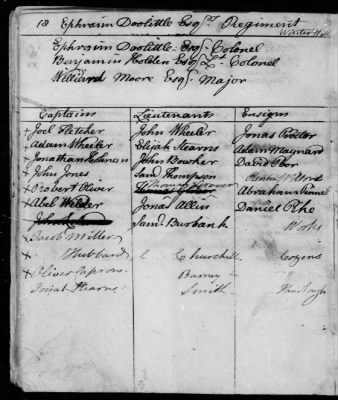 18 Ephraim Doolittle Esqrs Regiment
Winter Hill
Ephraim Doolittle Esqr. Colonel
Benjamin Holden Esqr Lt. Colonel
Williard Moore Esqr. Major
Captains Lieutenants Ensigns
+ Joel Fletcher John Wheeler Jonas Proctor
+ Adam Wheeler Elijah Stearns Adam Maynard
+ Jonathan Holman John Bowker David Poor
+ John Jones Saml Thompson Willard
+ Robert Oliver Thomas Grover Abraham Pennel
+ Abel Wilder Jonas Allin Daniel Pike
Saml Burbank Works
+ Jacob Miller
+ Hubbard Churchill Cozens
+ Oliver Capron Barney
Smith